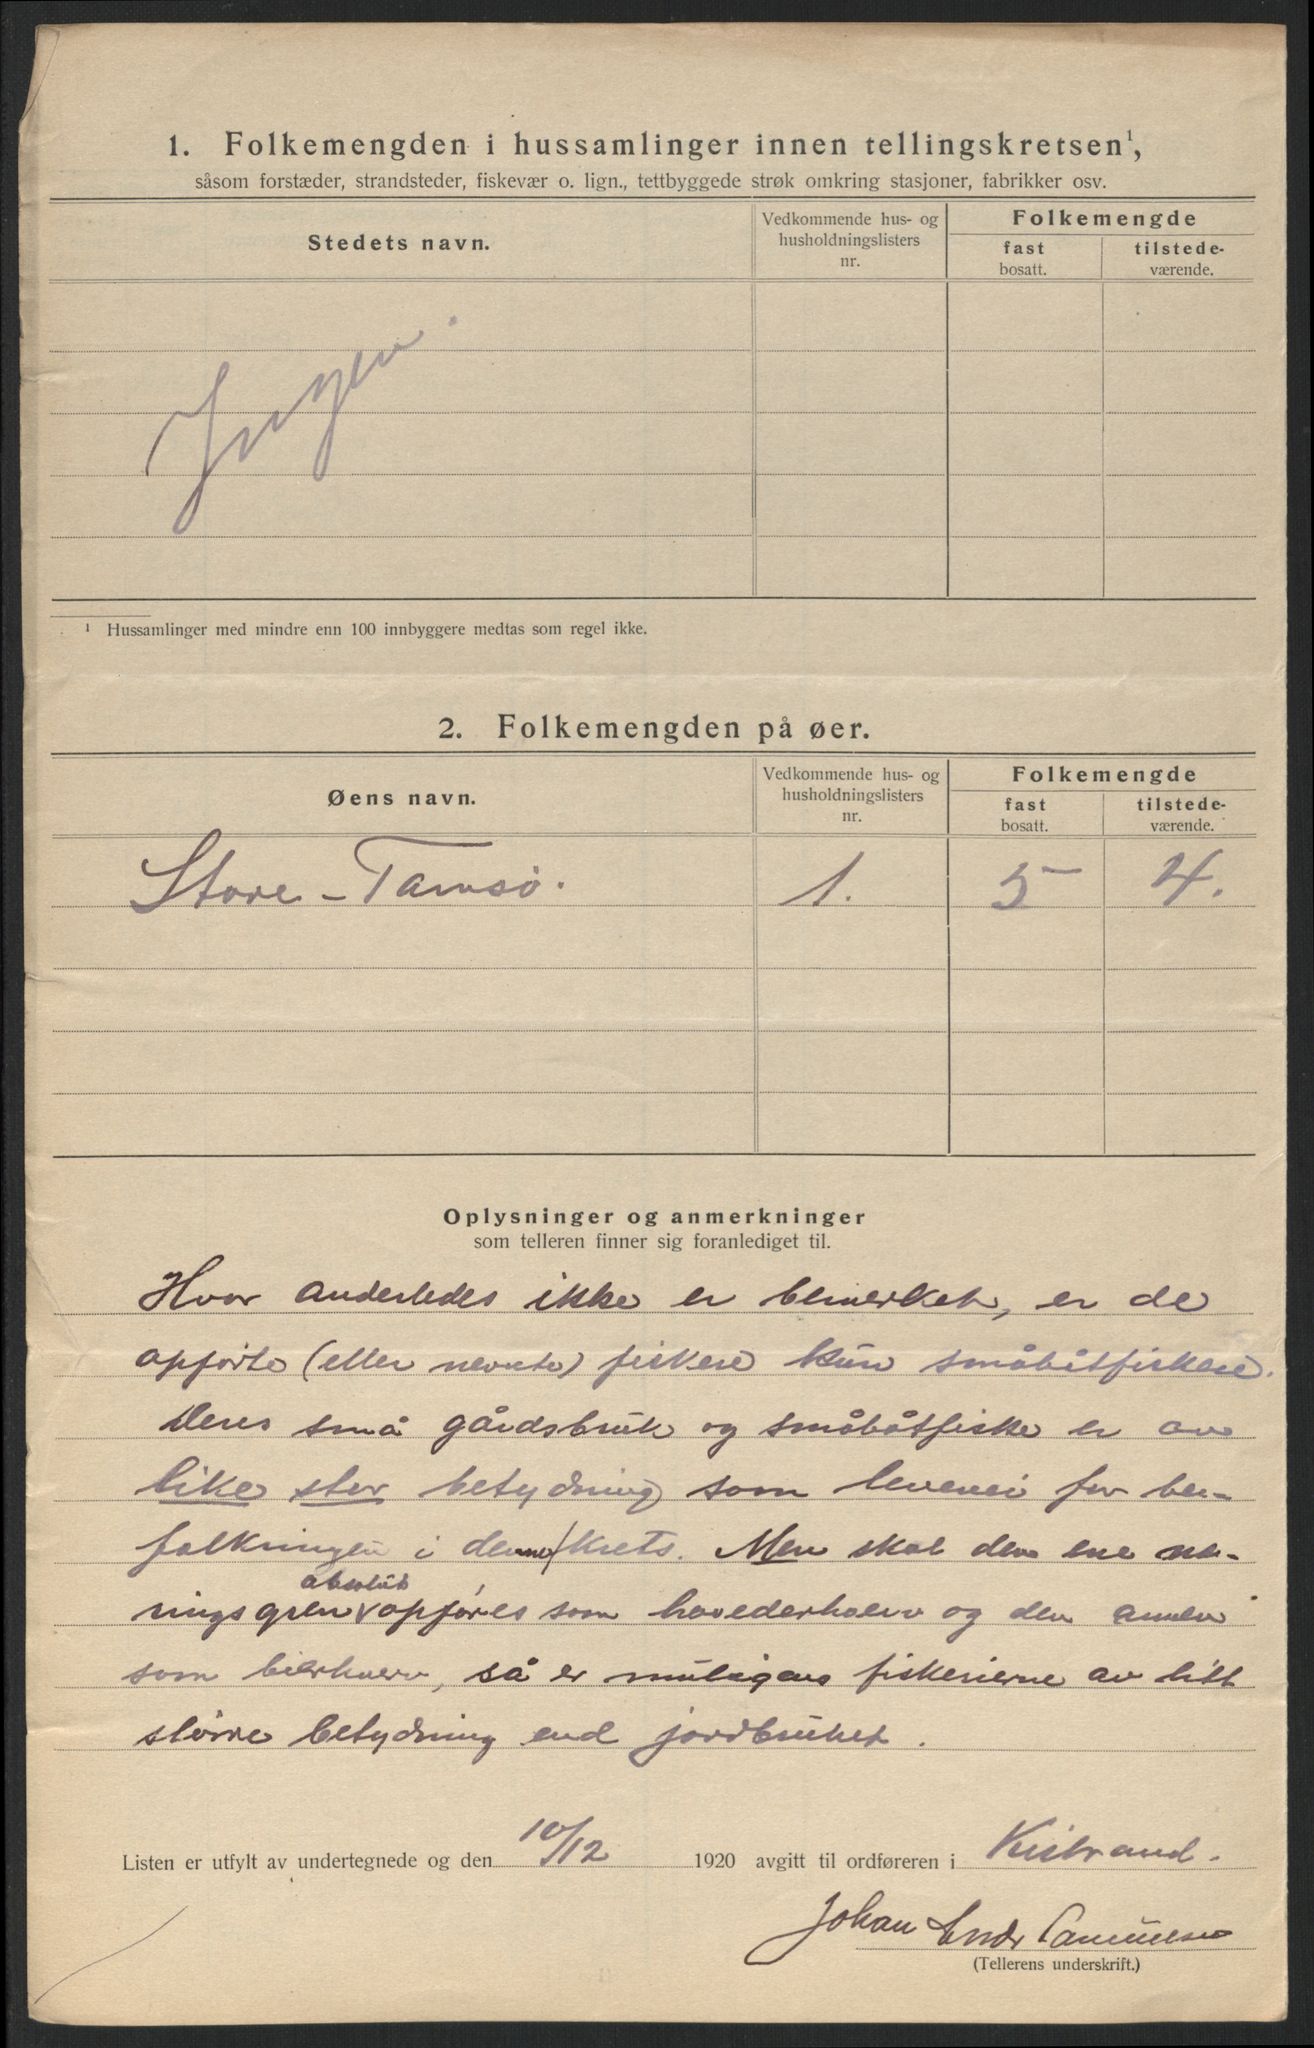 1. Folkemengden i hussamlinger innen tellingskretsen¹,
såsom forstæder, strandsteder, fiskevær o. lign., tettbyggede strøk omkring stasjoner, fabrikker osv.
Stedets navn.
Vedkommende hus- og
husholdningslisters
nr.
Folkemengde
fast
bosatt.
tilstede-
værende.
Ingen.
¹ Hussamlinger med mindre enn 100 innbyggere medtas som regel ikke.
2. Folkemengden på øer.
Øens navn.
Vedkommende hus- og
husholdningslisters
nr.
Folkemengde
fast
bosatt.
tilstede-
værende.
Store-Tamsø. 1. 5 4.
Oplysninger og anmerkninger
som telleren finner sig foranlediget til.
Hvor anderledes ikke er bemerket, er de
opførte (eller nevnte) fiskere kun småbåtfiskere.
Deres små gårdsbruk og småbåtfiske er av
like stor betydning som levevei for be-
folkningen i denne krets. Men skal den ene næ-
absolut
ringsgren opføres som hovederhverv og den annen
som bierhverv, så er muligens fiskeriene av litt
større betydning end jordbruket.
Listen er utfylt av undertegnede og den 10/12 1920 avgitt til ordføreren i Kistrand.
Johan Samuelsen
(Tellerens underskrift.)